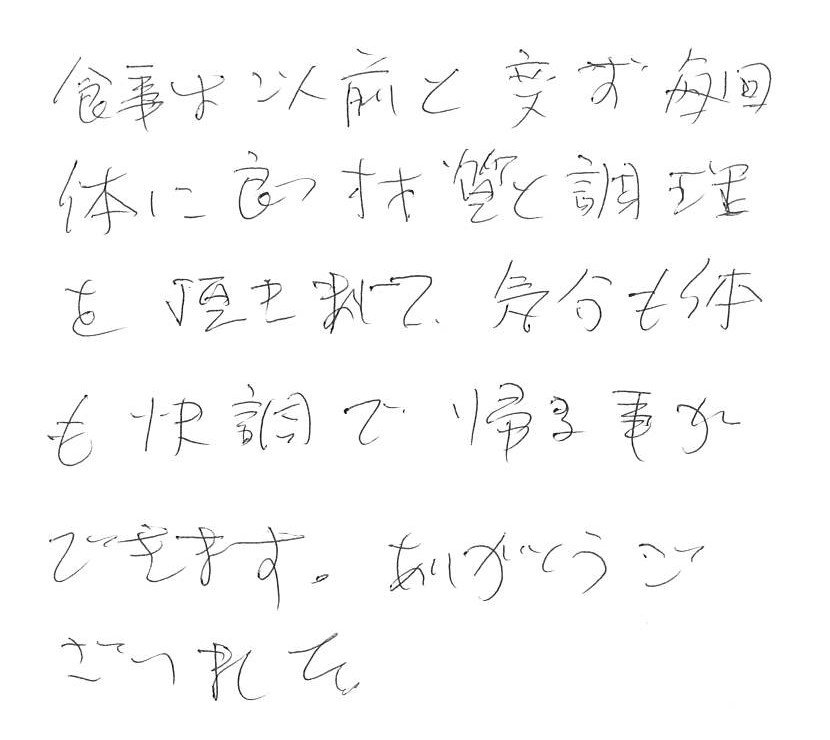 食事は以前と変ず毎回
体に良い材質と調理
を頂きまして、気分も体
も快調で帰る事が
できます。ありがとうご
ざいました